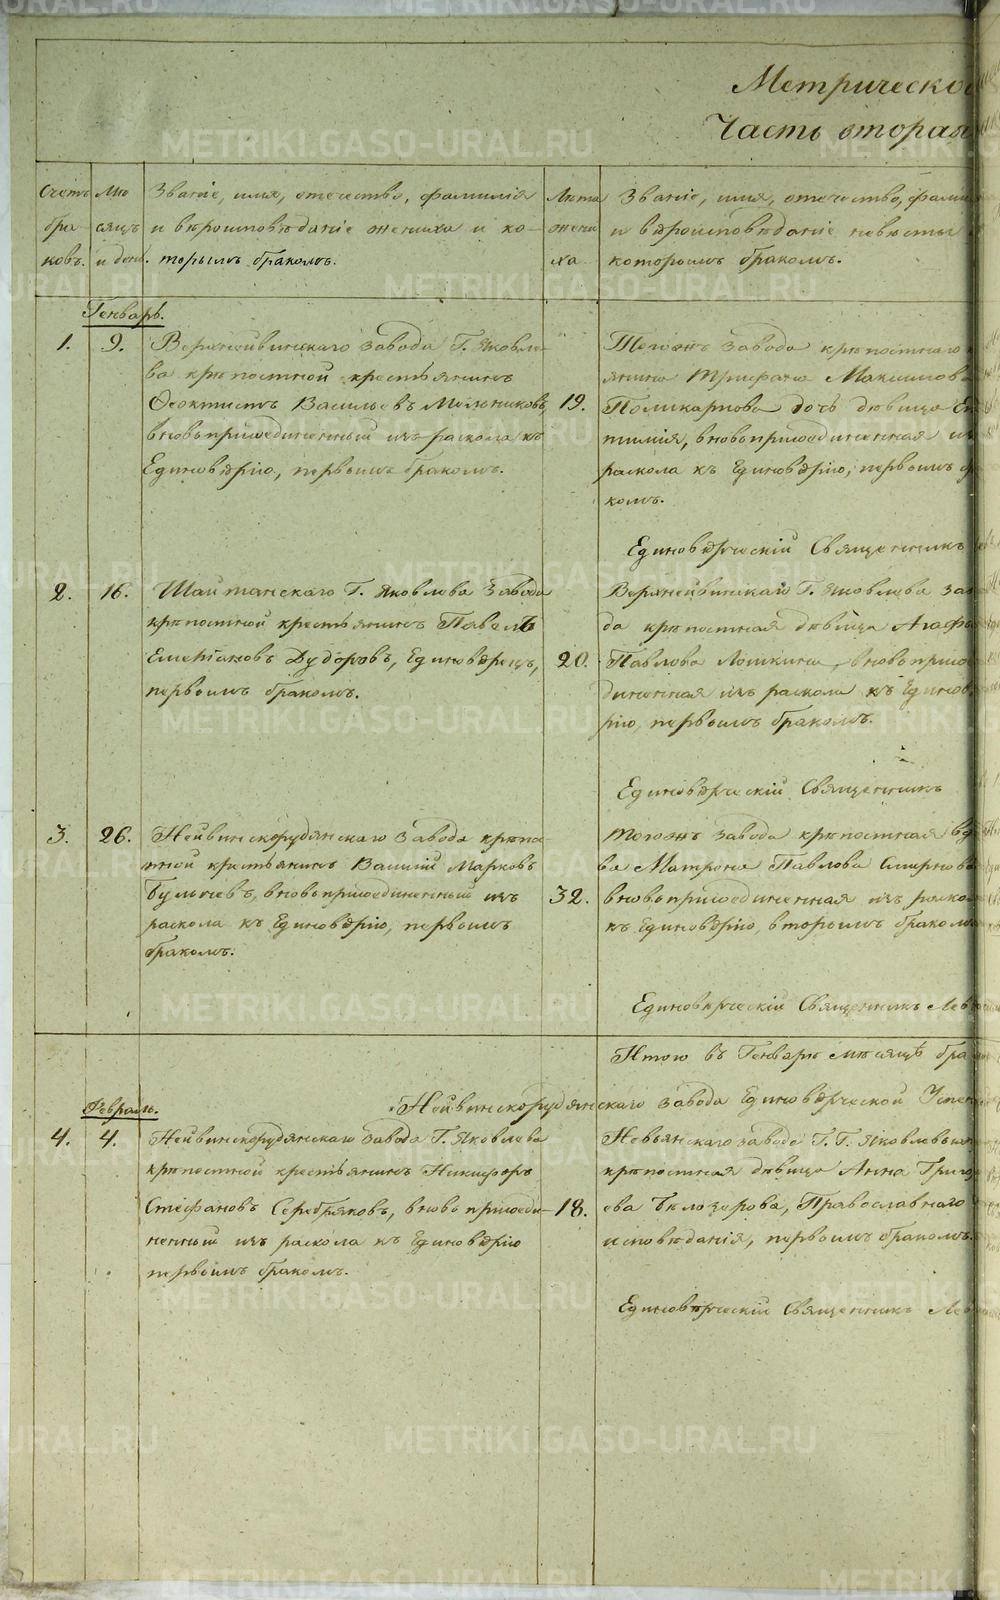 Метрическо
Часть вторая
Счетъ
бра
ковъ.
Мѣ
сяцъ
и день.
Званіе, имя, отечество, фамилія
и вѣроисповѣданіе жениха и ко-
торымъ бракомъ.
Лѣта
жени
ха
Званіе, имя, отечество, фами
и вѣроисповѣданіе невѣсты
которымъ бракомъ.
Генварь.
1. 9. Верхнейвинскаго завода Г. Яковле-
ва крѣпостной крестьянинъ
Ѳеоктистъ Васильевъ Мельниковъ,
вновьприсоединенный изъ раскола къ
Единовѣрію, первымъ бракомъ.
19.
Тогожъ завода крѣпостнаго
янина Трифана Максимова
Поликарпова дочь дѣвица Ев
тимія, вновьприсоединенная из
раскола къ Единовѣрію, первымъ б
комъ.
Единовѣрческій Священникъ
2. 16. Шайтанскаго Г. Яковлева завода
крѣпостной крестьянинъ Павелъ
Емельяновъ Дудоровъ, Единовѣрецъ,
первымъ бракомъ.
20.
Верхнейвинскаго Г. Яковлева зав
да крѣпостная дѣвица Агафь
Павлова Лошкина, вновьприсое
диненная изъ раскола къ Единов
рію, первымъ бракомъ.
Единовѣрческій Священникъ
3. 26. Нейвинскорудянскаго завода крѣпос
тной крестьянинъ Василій Марковъ
Булычевъ, вновьприсоединенный изъ
раскола къ Единовѣрію, первымъ
бракомъ.
32.
тогожъ завода крѣпостная вдо
ва Матрона Павлова Смирнова
вновьприсоединенная изъ раско
къ Единовѣрію, вторымъ бракомъ
Единовѣрческій Священникъ Лев
Итого въ Генварѣ мѣсяцѣ бра
Нейвинскорудянскаго завода Единовѣрческой Успен
Февраль.
4. 4. Нейвинскорудянскаго завода Г. Яковлева
крѣпостной крестьянинъ Никифоръ
Стефановъ Серебряковъ, вновьприсоеди-
ненный изъ раскола къ Единовѣрію
первымъ бракомъ.
18.
Невьянскаго завода Г. Г. Яковлевыхъ
крѣпостная дѣвица Анна Григор
ева Бѣлозерова, Православнаго
исповѣданія, первымъ бракомъ.
Единовѣрческій Священникъ Лев
METRIKI.GASO-URAL.RU